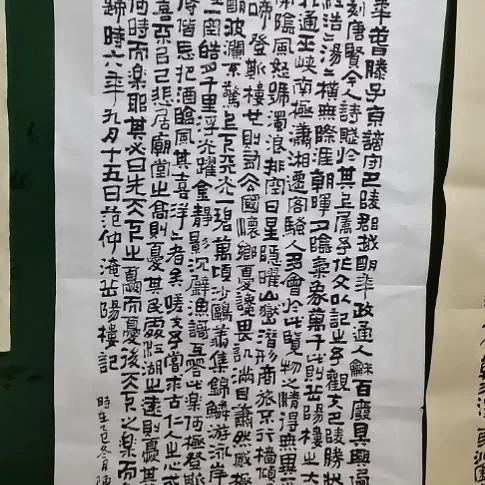 年春滕子京謫守巴陵郡越明年政通人和百廢具興
刻唐賢今人詩賦於其上屬予作文以記之予觀夫巴陵勝狀
浩浩湯湯橫無際涯朝暉夕陰氣象萬千此則岳陽樓之大
北通巫峽南極瀟湘遷客騷人多會於此覽物之情得無異
陰風怒號濁浪排空日星隱曜山嶽潛形商旅不行檣傾
啼登斯樓也則有去國懷鄉憂讒畏譏滿目蕭然感極
波瀾不驚上下天光一碧萬頃沙鷗翔集錦鱗游泳岸
一空皓月千里浮光躍金靜影沉璧漁歌互答此樂何極登斯
辱偕忘把酒臨風其喜洋洋者矣嗟夫予嘗求古仁人之心或
喜不以己悲居廟堂之高則憂其民處江湖之遠則憂其
何時而樂耶其必曰先天下之憂而憂後天下之樂而
歸時六年九月十五日范仲淹岳陽樓記
時在乙巳冬月陳